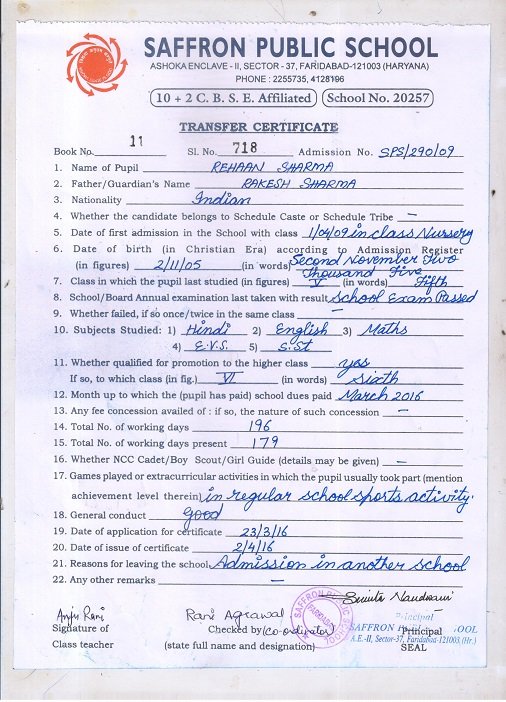 SAFFRON PUBLIC SCHOOL
ASHOKA ENCLAVE - II, SECTOR - 37, FARIDABAD-121003 (HARYANA)
PHONE : 2255735, 4128196
10 + 2 C. B. S. E. Affiliated School No. 20257
TRANSFER CERTIFICATE
Book No. 11 Sl. No. 718 Admission No. SPS/290/09
1. Name of Pupil REHAAN SHARMA
2. Father/Guardian's Name RAKESH SHARMA
3. Nationality Indian
4. Whether the candidate belongs to Schedule Caste or Schedule Tribe —
5. Date of first admission in the School with class 1/04/09 in class Nursery
6. Date of birth (in Christian Era) according to Admission Register
(in figures) 2/11/05 (in words) Second November Two Thousand Five
7. Class in which the pupil last studied (in figures) V (in words) Fifth
8. School/Board Annual examination last taken with result School Exam Passed
9. Whether failed, if so once/twice in the same class —
10. Subjects Studied: 1) Hindi 2) English 3) Maths
4) E.V.S. 5) S.St
11. Whether qualified for promotion to the higher class yes
If so, to which class (in fig.) VI (in words) Sixth
12. Month up to which the (pupil has paid) school dues paid March 2016
13. Any fee concession availed of : if so, the nature of such concession —
14. Total No. of working days 196
15. Total No. of working days present 179
16. Whether NCC Cadet/Boy Scout/Girl Guide (details may be given) —
17. Games played or extracurricular activities in which the pupil usually took part (mention
achievement level therein) in regular school sports activity.
18. General conduct good
19. Date of application for certificate 23/3/16
20. Date of issue of certificate 2/4/16
21. Reasons for leaving the school Admission in another school
22. Any other remarks —
Anju Rani Rani Agrawal
Signature of Checked by (Co-ordinator) Principal
Class teacher (state full name and designation) SEAL
SAFFRON PUBLIC SCHOOL
FARIDABAD
Principal
SAFFRON PUBLIC SCHOOL
A.E.-II, Sector-37, Faridabad-121003. (Hr.)